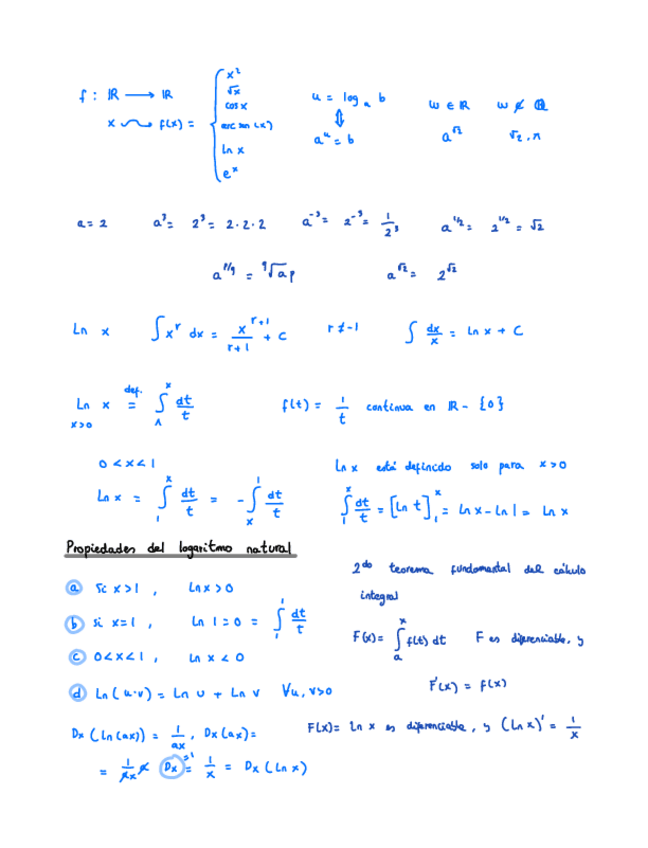 f : ℝ ⟶ ℝ
x ⤳ f(x) = { x²
√x
cos x
arc sen (x)
ln x
eˣ
u = log_a b
⇕
aᵘ = b
w ∈ ℝ w ∉ ℚ
a^√2 √2, π
a = 2 a³ = 2³ = 2·2·2 a⁻³ = 2⁻³ = 1/2³ a^1/2 = 2^1/2 = √2
a^p/q = ^q√a^p a^√2 = 2^√2
Ln x ∫ xʳ dx = x^(r+1)/(r+1) + C r ≠ -1 ∫ dx/x = Ln x + C
Ln x =^def. ∫_1^x dt/t f(t) = 1/t continua en ℝ - {0}
x>0
0 < x < 1
Ln x = ∫_1^x dt/t = - ∫_x^1 dt/t
Ln x está definido solo para x > 0
∫_1^x dt/t = [Ln t]_1^x = Ln x - Ln 1 = Ln x
Propiedades del logaritmo natural
a Si x > 1 , Ln x > 0
b si x = 1 , Ln 1 = 0 = ∫_1^1 dt/t
c 0 < x < 1 , Ln x < 0
d Ln (u·v) = Ln u + Ln v ∀u, v>0
Dx (Ln (ax)) = 1/ax . Dx (ax) =
= 1/ax a Dx^=1 = 1/x = Dx (Ln x)
2do teorema fundamental del cálculo
integral
F(x) = ∫_a^x f(t) dt F es diferenciable, y
F'(x) = f(x)
F(x) = Ln x es diferenciable, y (Ln x)' = 1/x